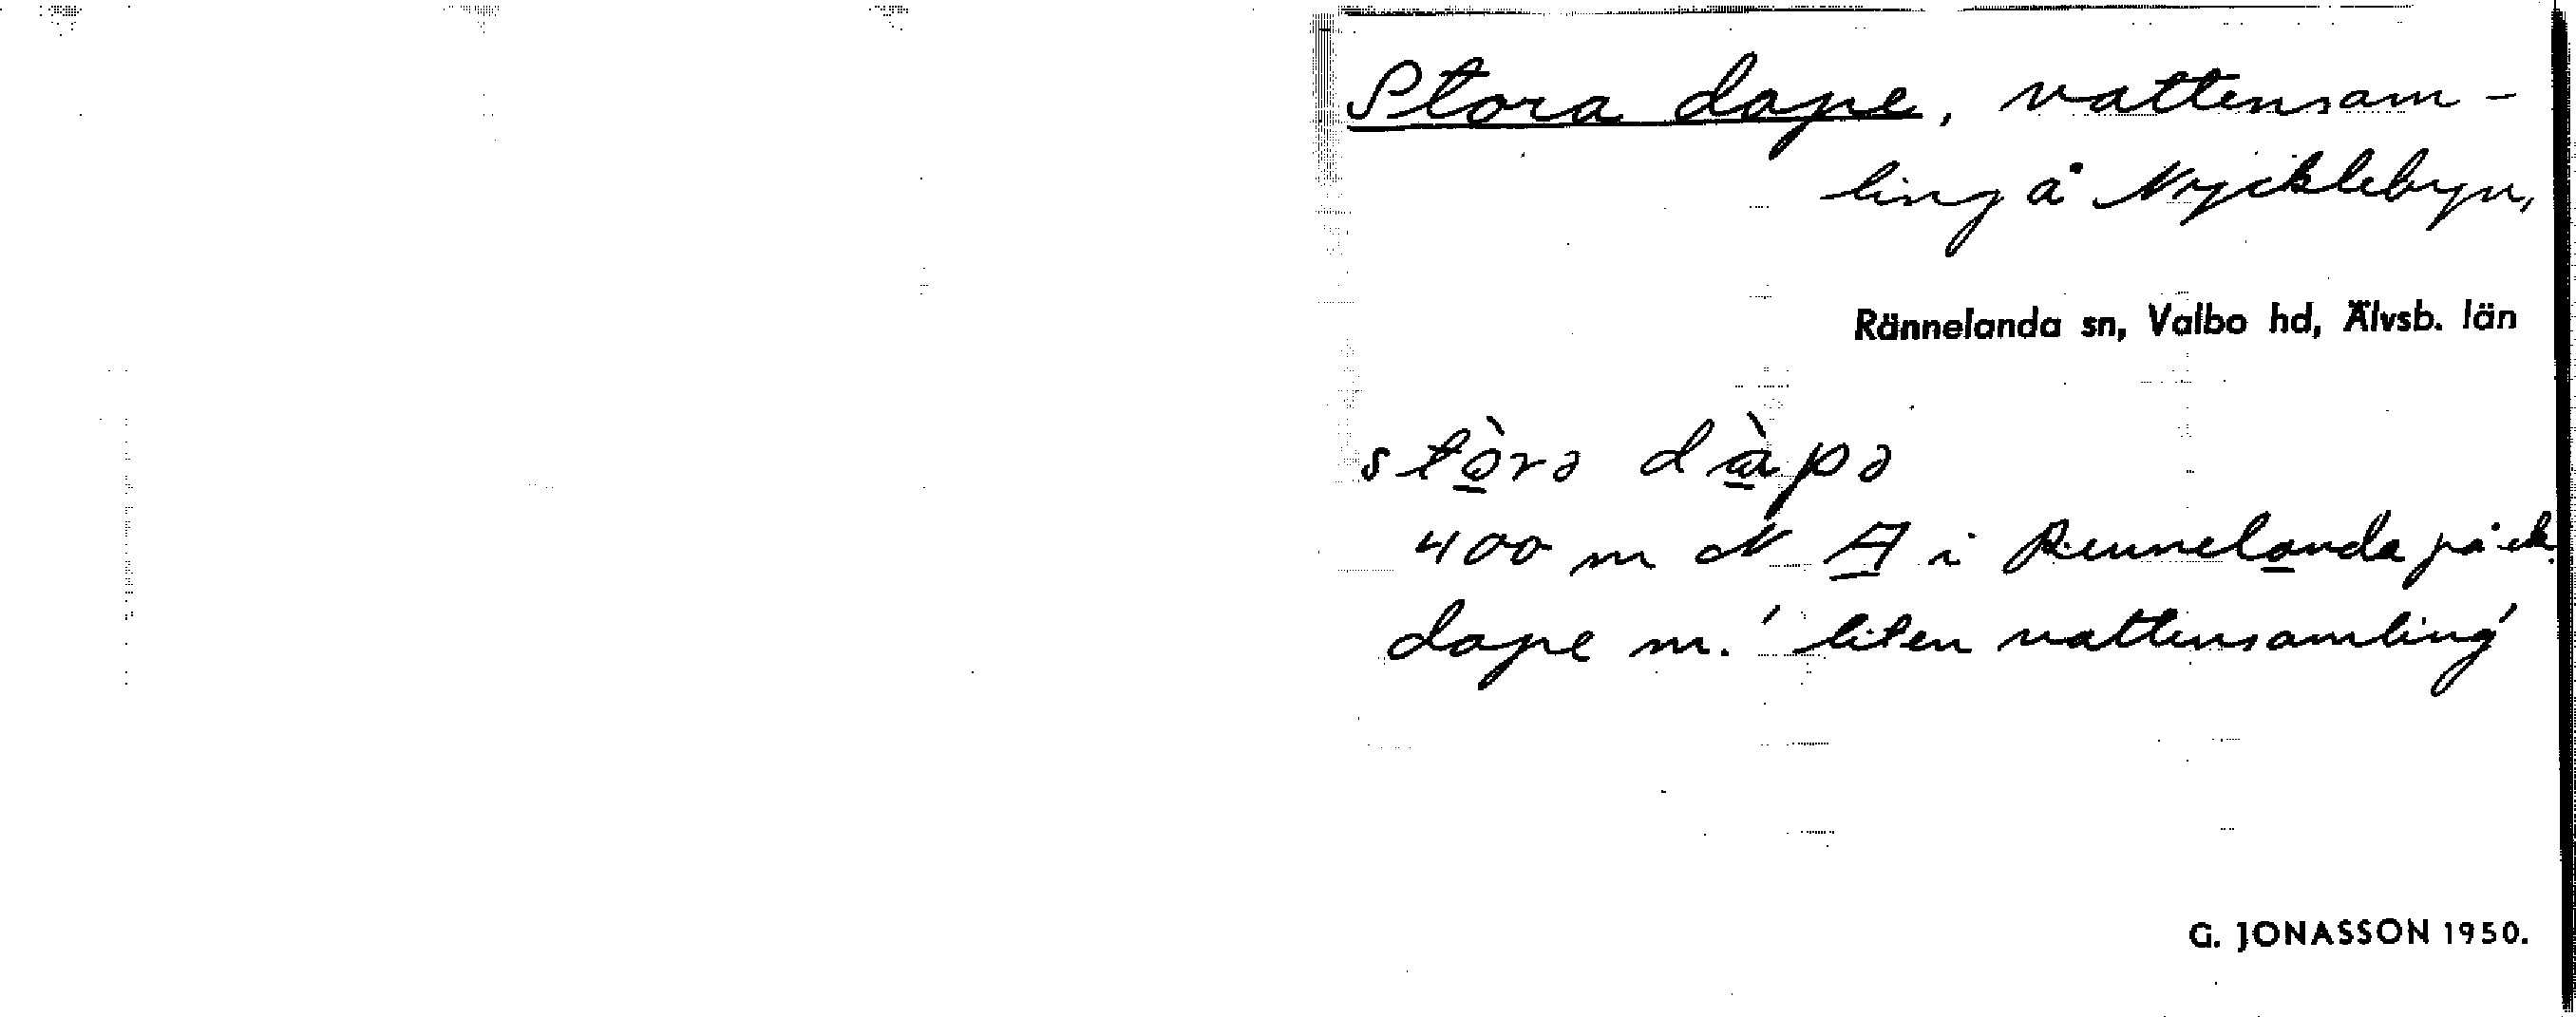 Stora dape, vattensam-
ling å Nycklebyn,
Rännelanda sn, Valbo hd, Älvsb. län
stòrə dàpə
400 m N A i Rennelanda på ek.
dape m. 'liten vattensamling'
G. JONASSON 1950.